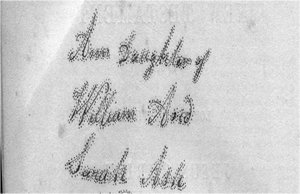 Ann Daughter of
William And
Sarah Ash